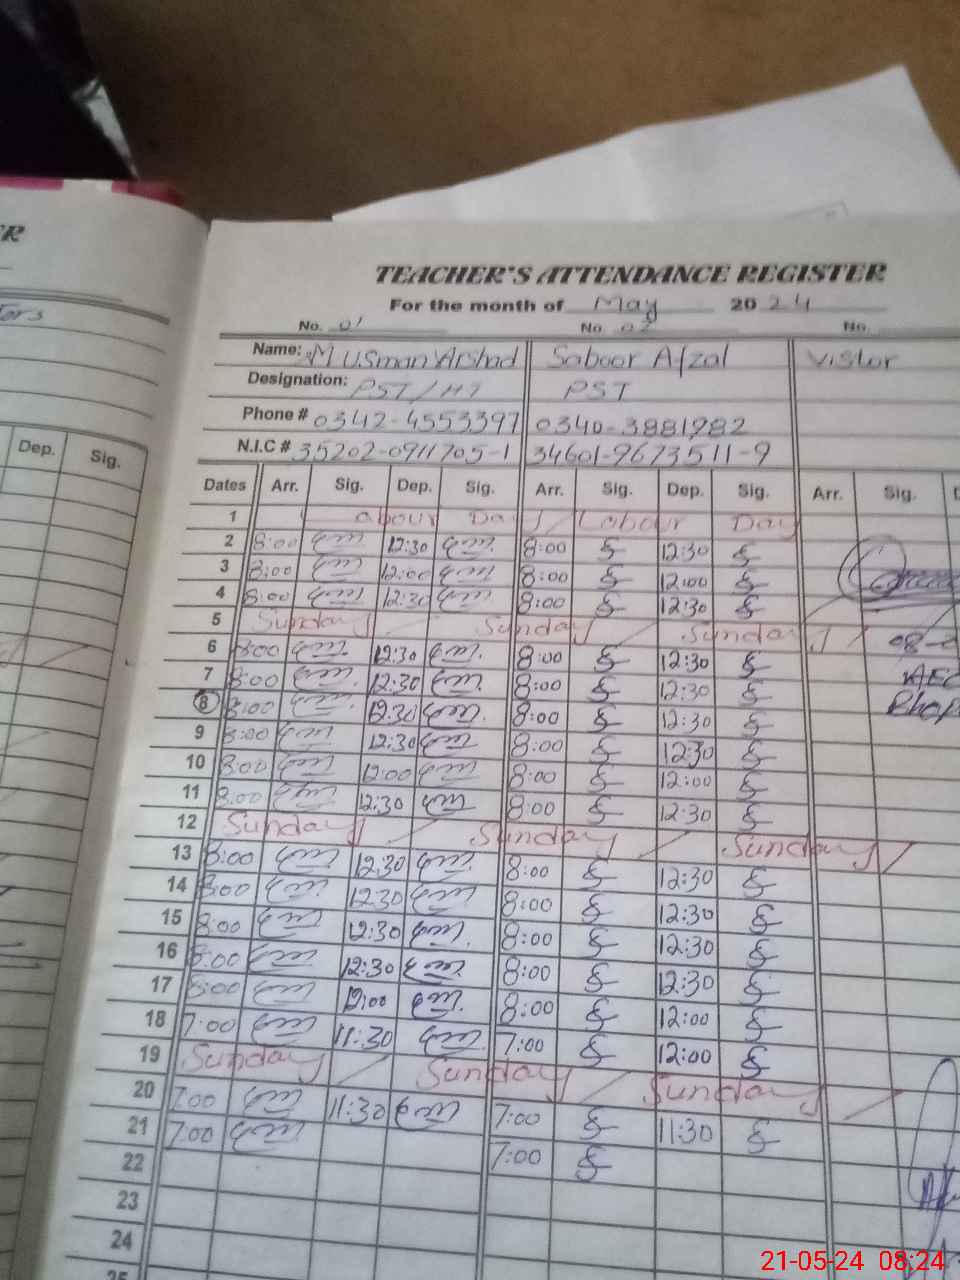 TEACHER'S ATTENDANCE REGISTER
For the month of May 2024
No. 01 No. 02 No.
Name: M Usman Arshad Saboor Afzal Vistor
Designation: PST/HT PST
Phone # 0342-4553397 0340-3881982
N.I.C # 35202-0911705-1 34601-9673511-9
Dep. Sig.
Dates Arr. Sig. Dep. Sig. Arr. Sig. Dep. Sig. Arr. Sig.
1 Labour Day / Labour Day
2 8:00 12:30 8:00 12:30
3 8:00 12:00 8:00 12:00
4 8:00 12:30 8:00 12:30
5 Sunday / Sunday / Sunday /
6 8:00 12:30 8:00 12:30
7 8:00 12:30 8:00 12:30
8 8:00 12:30 8:00 12:30
9 8:00 12:30 8:00 12:30
10 8:00 12:00 8:00 12:00
11 8:00 12:30 8:00 12:30
12 Sunday / Sunday / Sunday /
13 8:00 12:30 8:00 12:30
14 8:00 12:30 8:00 12:30
15 8:00 12:30 8:00 12:30
16 8:00 12:30 8:00 12:30
17 8:00 12:00 8:00 12:00
18 7:00 11:30 7:00 12:00
19 Sunday / Sunday / Sunday /
20 7:00 11:30 7:00 11:30
21 7:00 7:00
22
23
24
25
21-05-24 08:24